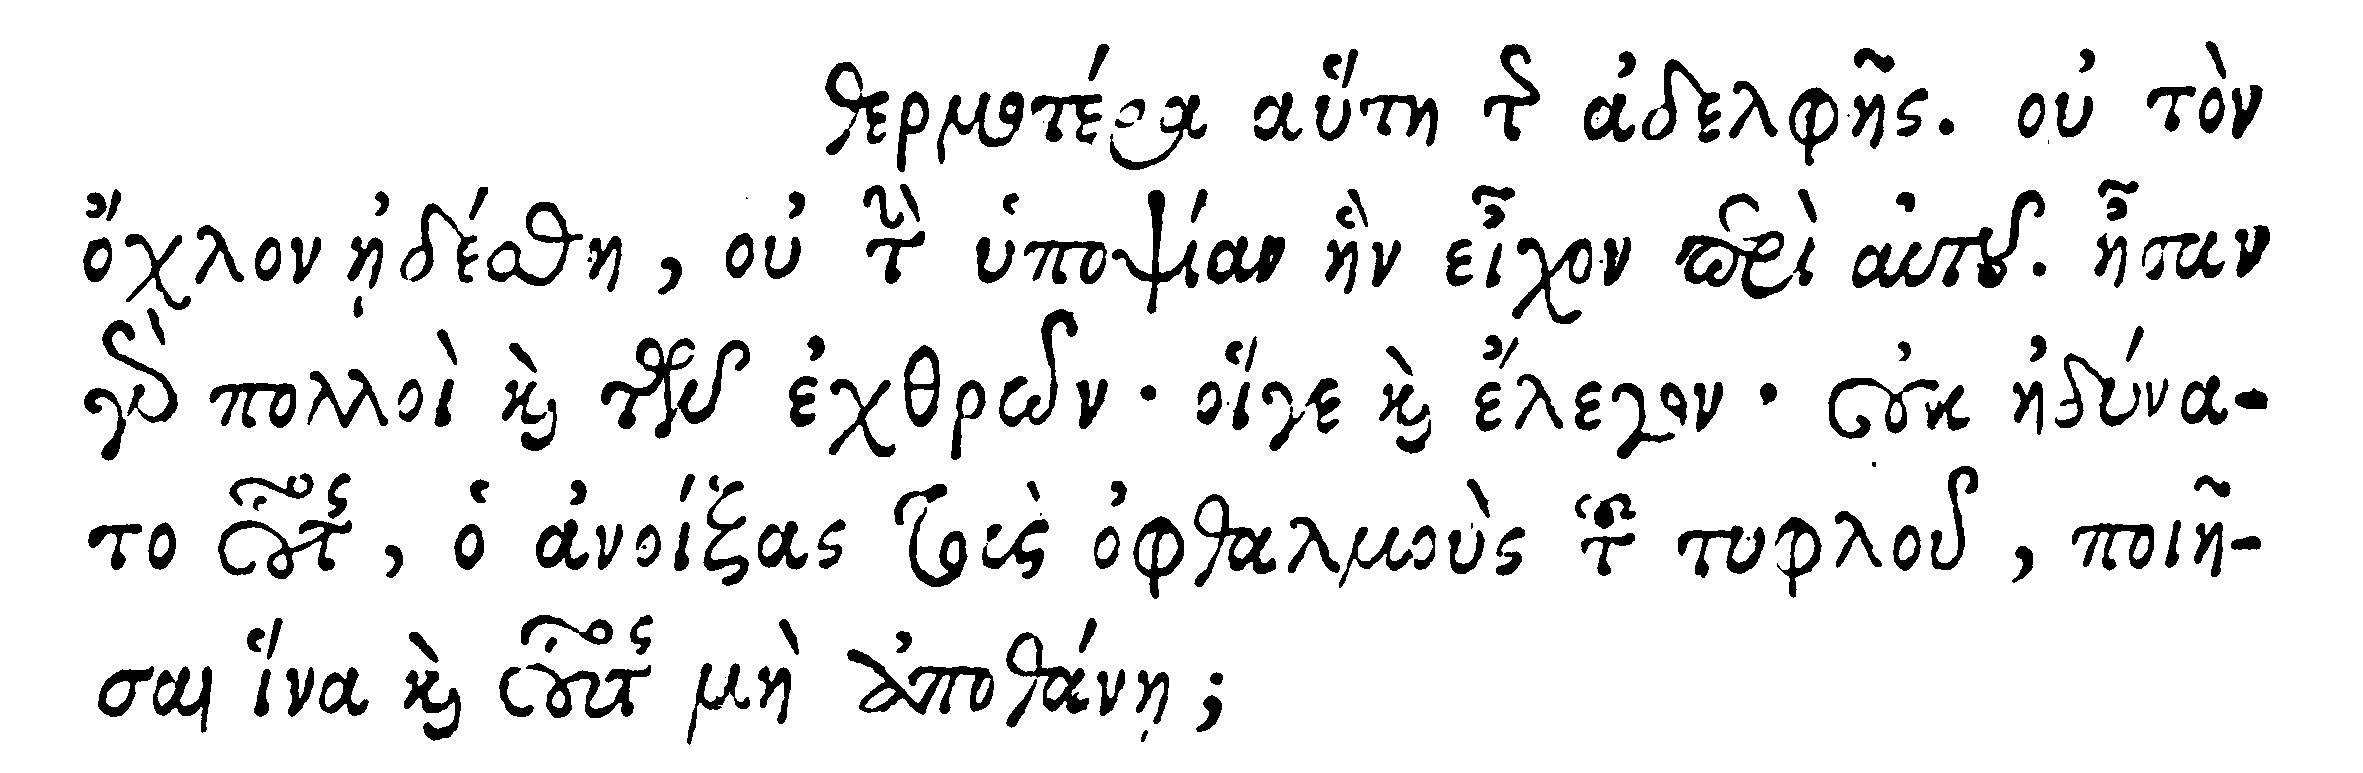 θερμοτέρα αὕτη τῆς ἀδελφῆς. οὐ τὸν
ὄχλον ᾐδέσθη, οὐ τὴν ὑποψίαν ἣν εἶχον περὶ αὐτοῦ. ἦσαν
γὰρ πολλοὶ καὶ τῶν ἐχθρῶν· οἵγε καὶ ἔλεγον· οὐκ ἠδύνα-
το οὗτος, ὁ ἀνοίξας τοὺς ὀφθαλμοὺς τοῦ τυφλοῦ, ποιῆ-
σαι ἵνα καὶ οὗτος μὴ ἀποθάνῃ;